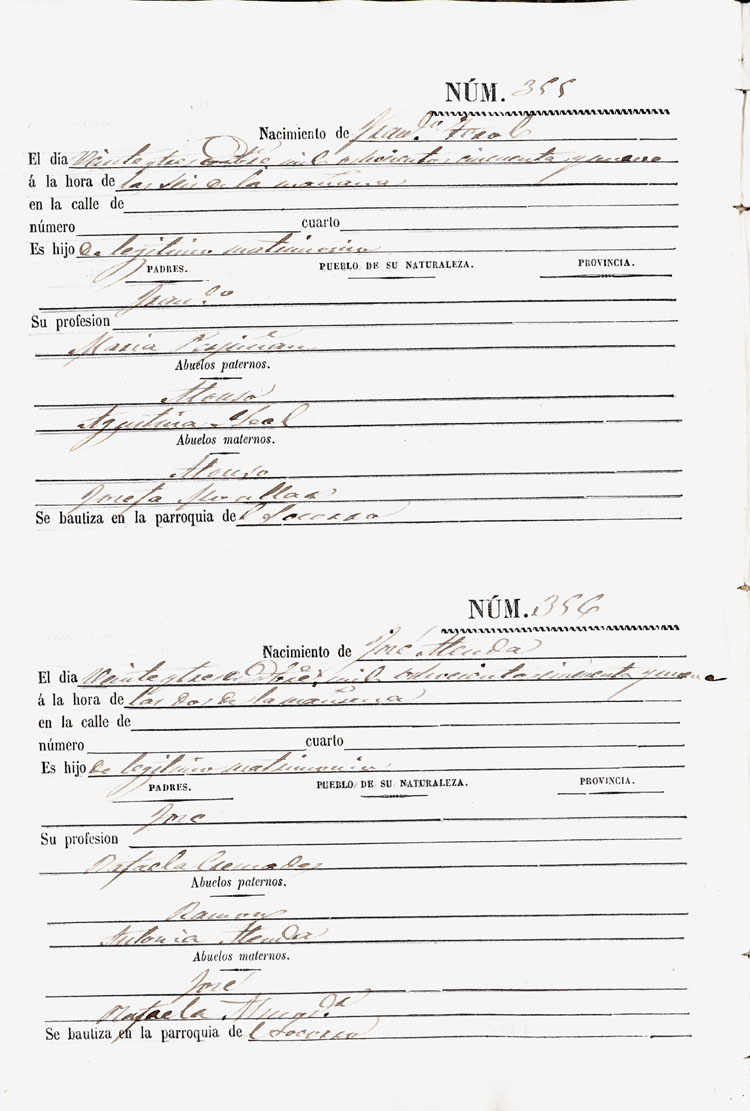 NÚM. 355
Nacimiento de Fran.ca
El dia Veinte y tres mil ochocientos cincuenta y nueve
á la hora de las seis de la mañana
en la calle de
número cuarto
Es hijo de legitimo matrimonio
PADRES. PUEBLO DE SU NATURALEZA. PROVINCIA.
Fran.co
Su profesion
Maria
Abuelos paternos.
Alonso
Agustina
Abuelos maternos.
Alonso
Josefa
Se bautiza en la parroquia del Socorro
NÚM. 356
Nacimiento de José Alenda
El dia Veinte y tres mil ochocientos cincuenta y nueve
á la hora de las dos de la mañana
en la calle de
número cuarto
Es hijo de legitimo matrimonio
PADRES. PUEBLO DE SU NATURALEZA. PROVINCIA.
José
Su profesion
Rafaela Cremades
Abuelos paternos.
Ramon
Antonia Alenda
Abuelos maternos.
José
Rafaela
Se bautiza en la parroquia del Socorro